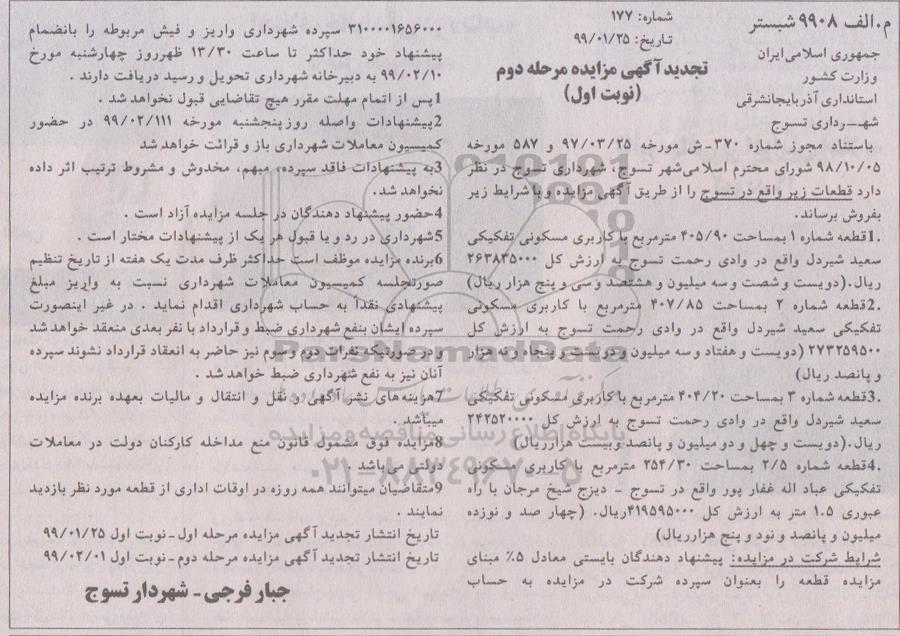 م.الف ۹۹۰۸ شبستر
شماره: ۱۷۷
تاریخ: ۹۹/۰۱/۲۵
جمهوری اسلامی ایران
وزارت کشور
استانداری آذربایجانشرقی
شهـــرداری تسوج
تجدید آگهی مزایده مرحله دوم
(نوبت اول)
باستناد مجوز شماره ۳۷۰-ش مورخه ۹۷/۰۳/۲۵ و ۵۸۷ مورخه
۹۸/۱۰/۰۵ شورای محترم اسلامی شهر تسوج، شهرداری تسوج در نظر
دارد قطعات زیر واقع در تسوج را از طریق آگهی مزایده و با شرایط زیر
بفروش برساند.
.1قطعه شماره ۱ بمساحت ۴۰۵/۹۰ مترمربع با کاربری مسکونی تفکیکی
سعید شیردل واقع در وادی رحمت تسوج به ارزش کل ۲۶۳۸۳۵۰۰۰
ریال.(دویست و شصت و سه میلیون و هشتصد و سی و پنج هزار ریال)
.2قطعه شماره ۲ بمساحت ۴۰۷/۸۵ مترمربع با کاربری مسکونی
تفکیکی سعید شیردل واقع در وادی رحمت تسوج به ارزش کل
۲۷۳۲۵۹۵۰۰ (دویست و هفتاد و سه میلیون و دویست و پنجاه و نه هزار
و پانصد ریال)
.3قطعه شماره ۳ بمساحت ۴۰۴/۲۰ مترمربع با کاربری مسکونی تفکیکی
سعید شیردل واقع در وادی رحمت تسوج به ارزش کل ۲۴۲۵۲۰۰۰۰
ریال.(دویست و چهل و دو میلیون و پانصد و بیست هزار ریال)
.4قطعه شماره ۲/۵ بمساحت ۲۵۴/۳۰ مترمربع با کاربری مسکونی
تفکیکی عباد اله غفار پور واقع در تسوج - دیزج شیخ مرجان با راه
عبوری ۱.۵ متر به ارزش کل ۴۱۹۵۹۵۰۰۰ریال. (چهار صد و نوزده
میلیون و پانصد و نود و پنج هزارریال)
شرایط شرکت در مزایده: پیشنهاد دهندگان بایستی معادل ۵٪ مبنای
مزایده قطعه را بعنوان سپرده شرکت در مزایده به حساب
۳۱۰۰۰۰۱۶۵۶۰۰۰ سپرده شهرداری واریز و فیش مربوطه را بانضمام
پیشنهاد خود حداکثر تا ساعت ۱۳/۳۰ ظهرروز چهارشنبه مورخ
۹۹/۰۲/۱۰ به دبیرخانه شهرداری تحویل و رسید دریافت دارند .
1پس از اتمام مهلت مقرر هیچ تقاضایی قبول نخواهد شد .
2پیشنهادات واصله روز پنجشنبه مورخه ۹۹/۰۲/۱۱۱ در حضور
کمیسیون معاملات شهرداری باز و قرائت خواهد شد
3به پیشنهادات فاقد سپرده، مبهم، مخدوش و مشروط ترتیب اثر داده
نخواهد شد.
4حضور پیشنهاد دهندگان در جلسه مزایده آزاد است .
5شهرداری در رد و یا قبول هر یک از پیشنهادات مختار است .
6برنده مزایده موظف است حداکثر ظرف مدت یک هفته از تاریخ تنظیم
صورتجلسه کمیسیون معاملات شهرداری نسبت به واریز مبلغ
پیشنهادی نقدا به حساب شهرداری اقدام نماید . در غیر اینصورت
سپرده ایشان بنفع شهرداری ضبط و قرارداد با نفر بعدی منعقد خواهد شد
و در صورتیکه نفرات دوم و سوم نیز حاضر به انعقاد قرارداد نشوند سپرده
آنان نیز به نفع شهرداری ضبط خواهد شد .
7هزینه های نشر آگهی و نقل و انتقال و مالیات بعهده برنده مزایده
میباشد .
8مزایده فوق مشمول قانون منع مداخله کارکنان دولت در معاملات
دولتی می باشد .
9متقاضیان میتوانند همه روزه در اوقات اداری از قطعه مورد نظر بازدید
نمایند .
تاریخ انتشار تجدید آگهی مزایده مرحله اول-نوبت اول ۹۹/۰۱/۲۵
تاریخ انتشار تجدید آگهی مزایده مرحله دوم-نوبت اول ۹۹/۰۲/۰۱
جبار فرجی - شهردار تسوج
ParsNamadData
پایگاه اطلاع رسانی مناقصه و مزایده
۰۲۱-۸۸۳۴۹۶۷۰-۵